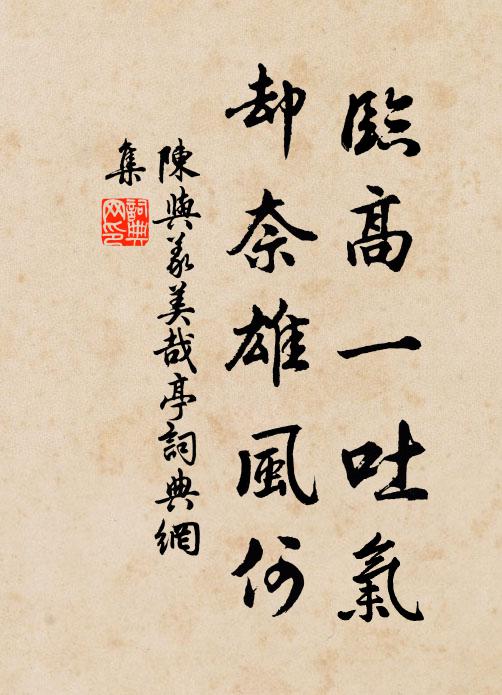 臨高一吐氣
却奈雄風何
陳與義美哉亭詞典網
集
詞典
网印